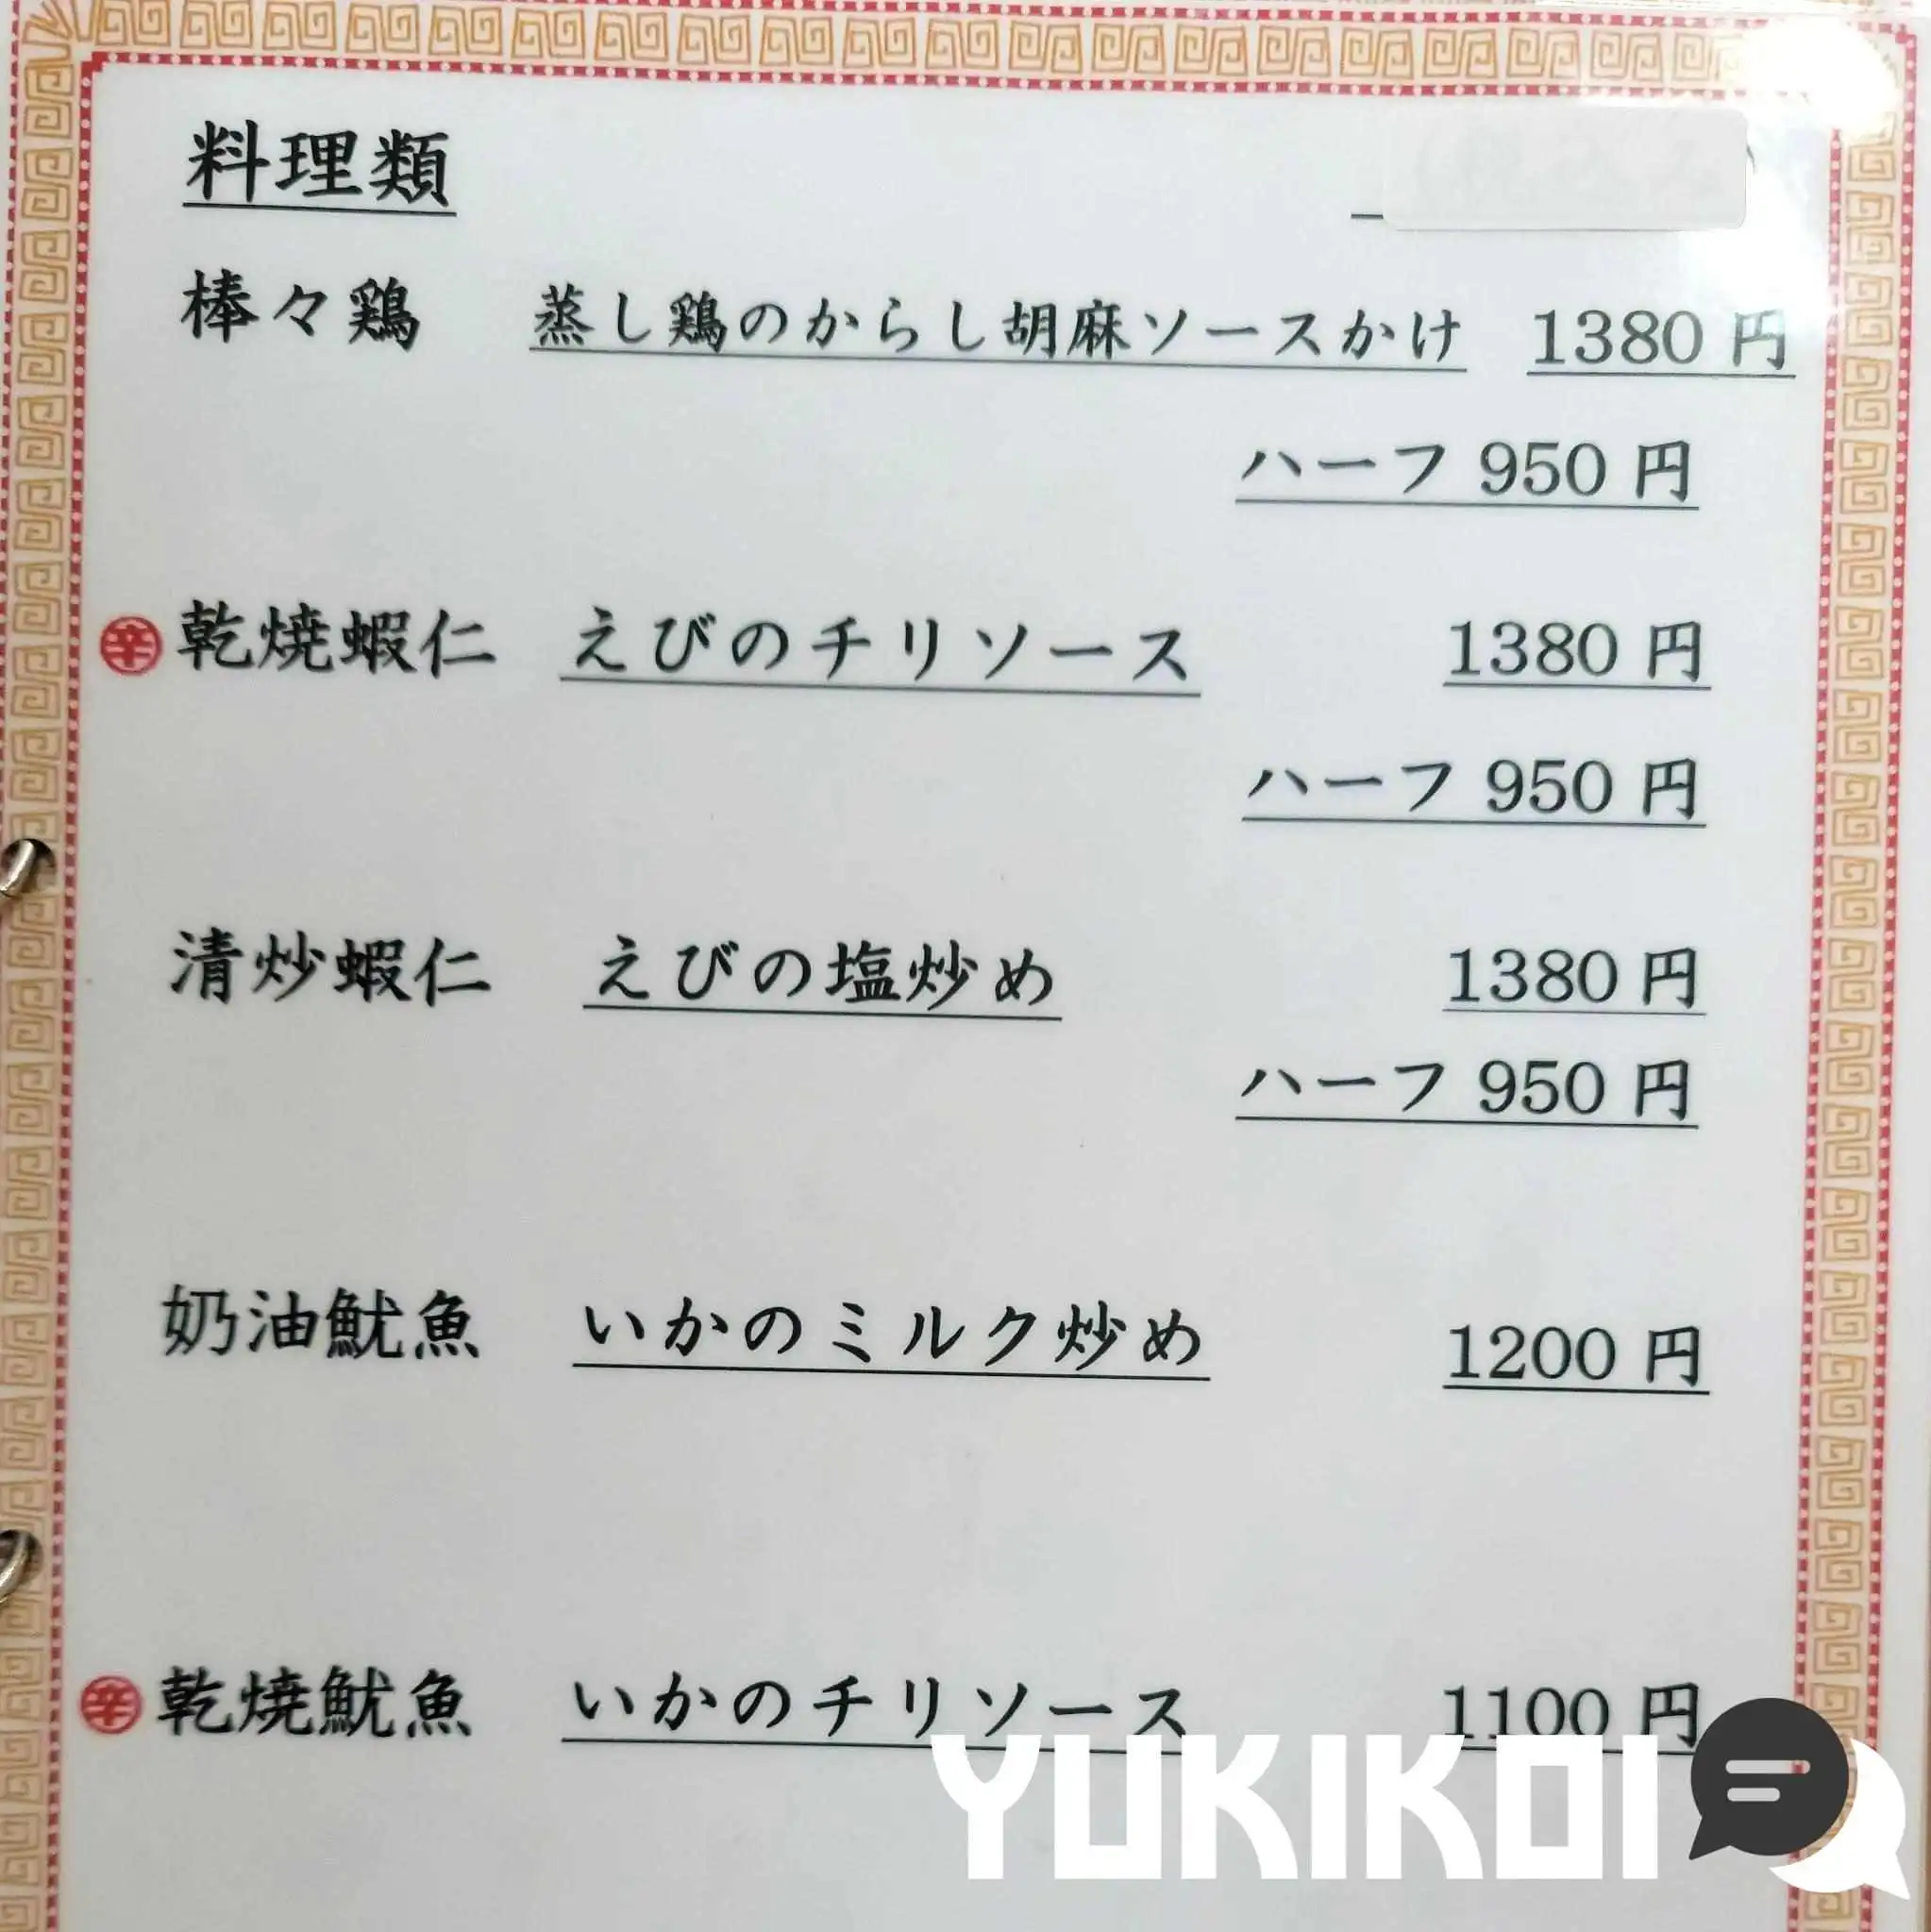 料理類
棒々鶏 蒸し鶏のからし胡麻ソースかけ 1380 円
ハーフ 950 円
辛 乾焼蝦仁 えびのチリソース 1380 円
ハーフ 950 円
清炒蝦仁 えびの塩炒め 1380 円
ハーフ 950 円
奶油魷魚 いかのミルク炒め 1200 円
辛 乾焼魷魚 いかのチリソース 1100 円
YUKIKOI